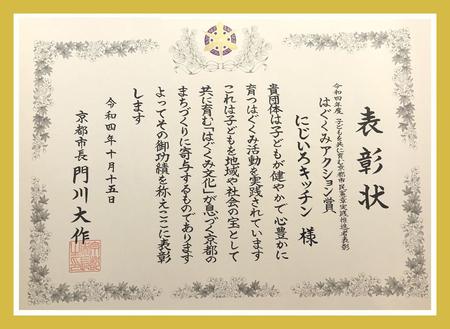 表彰状
令和四年度 子どもを共に育む京都市民憲章実践推進者表彰
はぐくみアクション賞
にじいろキッチン 様
貴団体は子どもが健やかで心豊かに
育つはぐくみ活動を実践されています
これは子どもを地域や社会の宝として
共に育む「はぐくみ文化」が息づく京都の
まちづくりに寄与するものであります
よってその御功績を称えここに表彰
します
令和四年十月十五日
京都市長 門川大作